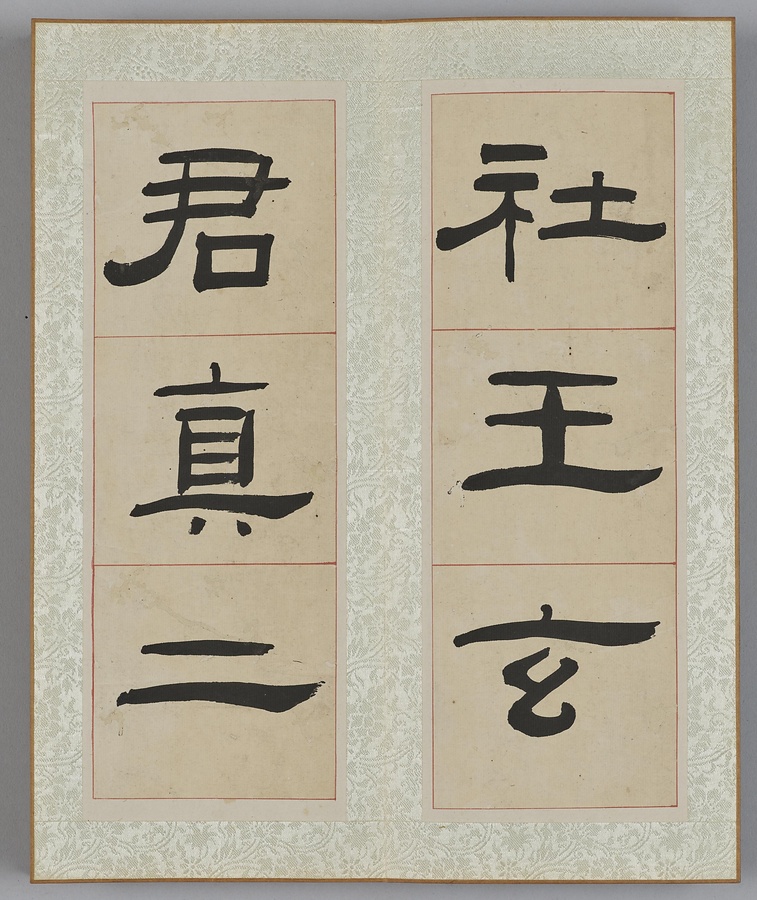 社王玄
君真二